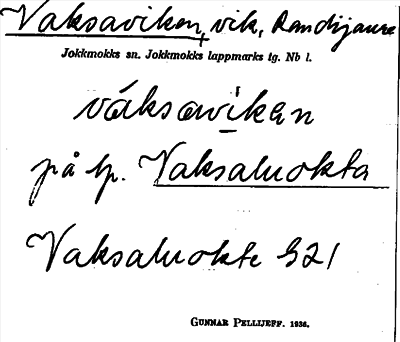 Vaksaviken, vik, Randijaure
Jokkmokks sn. Jokkmokks lappmarks tg. Nb l.
váksavikan
på lp. Vaksaluokta
Vaksaluokte 521
GUNNAR PELLIJEFF. 1936.